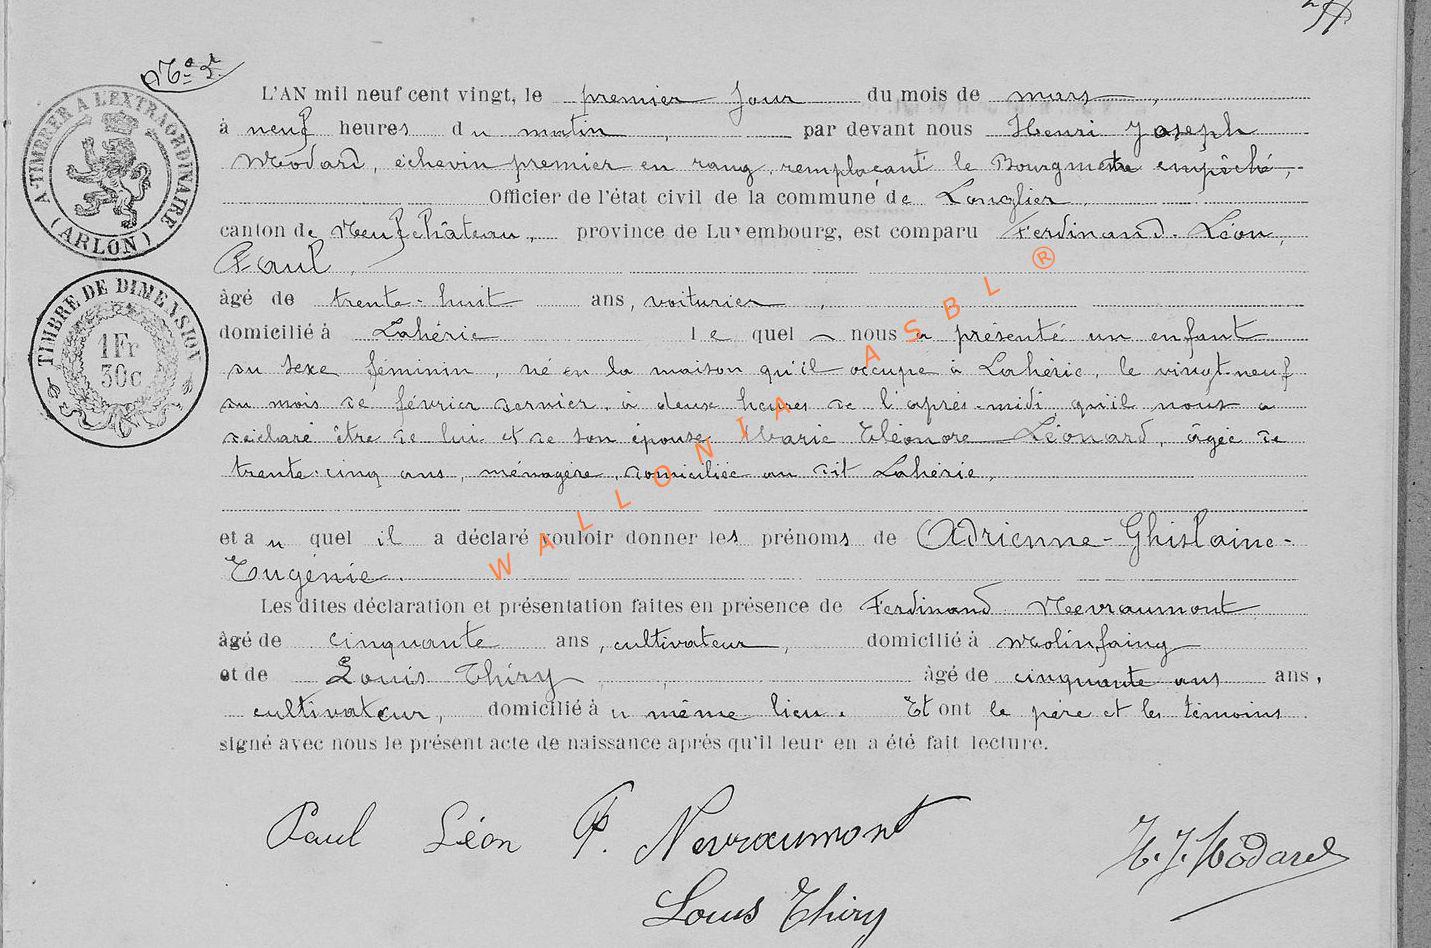 Nº 2
A TIMBRER A L'EXTRAORDINAIRE
(ARLON)
L'AN mil neuf cent vingt, le premier jour du mois de mars,
à neuf heures du matin, par devant nous Henri Joseph
Modard, échevin premier en rang, remplaçant le Bourgmestre empêché,
Officier de l'état civil de la commune de Longlier,
canton de Neufchâteau, province de Luxembourg, est comparu Ferdinand-Léon,
Paul,
TIMBRE DE DIMENSION
1Fr
30c
âgé de trente-huit ans, voiturier,
domicilié à Lahérie le quel nous a présenté un enfant
du sexe féminin, né en la maison qu'il occupe à Lahérie, le vingt-neuf
du mois de février dernier, à deux heures de l'après-midi, qu'il nous a
déclaré être de lui et de son épouse Marie Eléonore Léonard, âgée de
trente-cinq ans, ménagère, domiciliée au dit Lahérie,
et au quel il a déclaré vouloir donner les prénoms de Adrienne-Ghislaine-
Eugénie.
Les dites déclaration et présentation faites en présence de Ferdinand Nevraumont
âgé de cinquante ans, cultivateur, domicilié à Molinfaing
et de Louis Thiry, âgé de cinquante ans ans,
cultivateur, domicilié à u même lieu. Et ont le père et les témoins
signé avec nous le présent acte de naissance après qu'il leur en a été fait lecture.
Paul Léon F. Nevraumont
H. J. Modard
Louis Thiry
WALLONIA ASBL ®